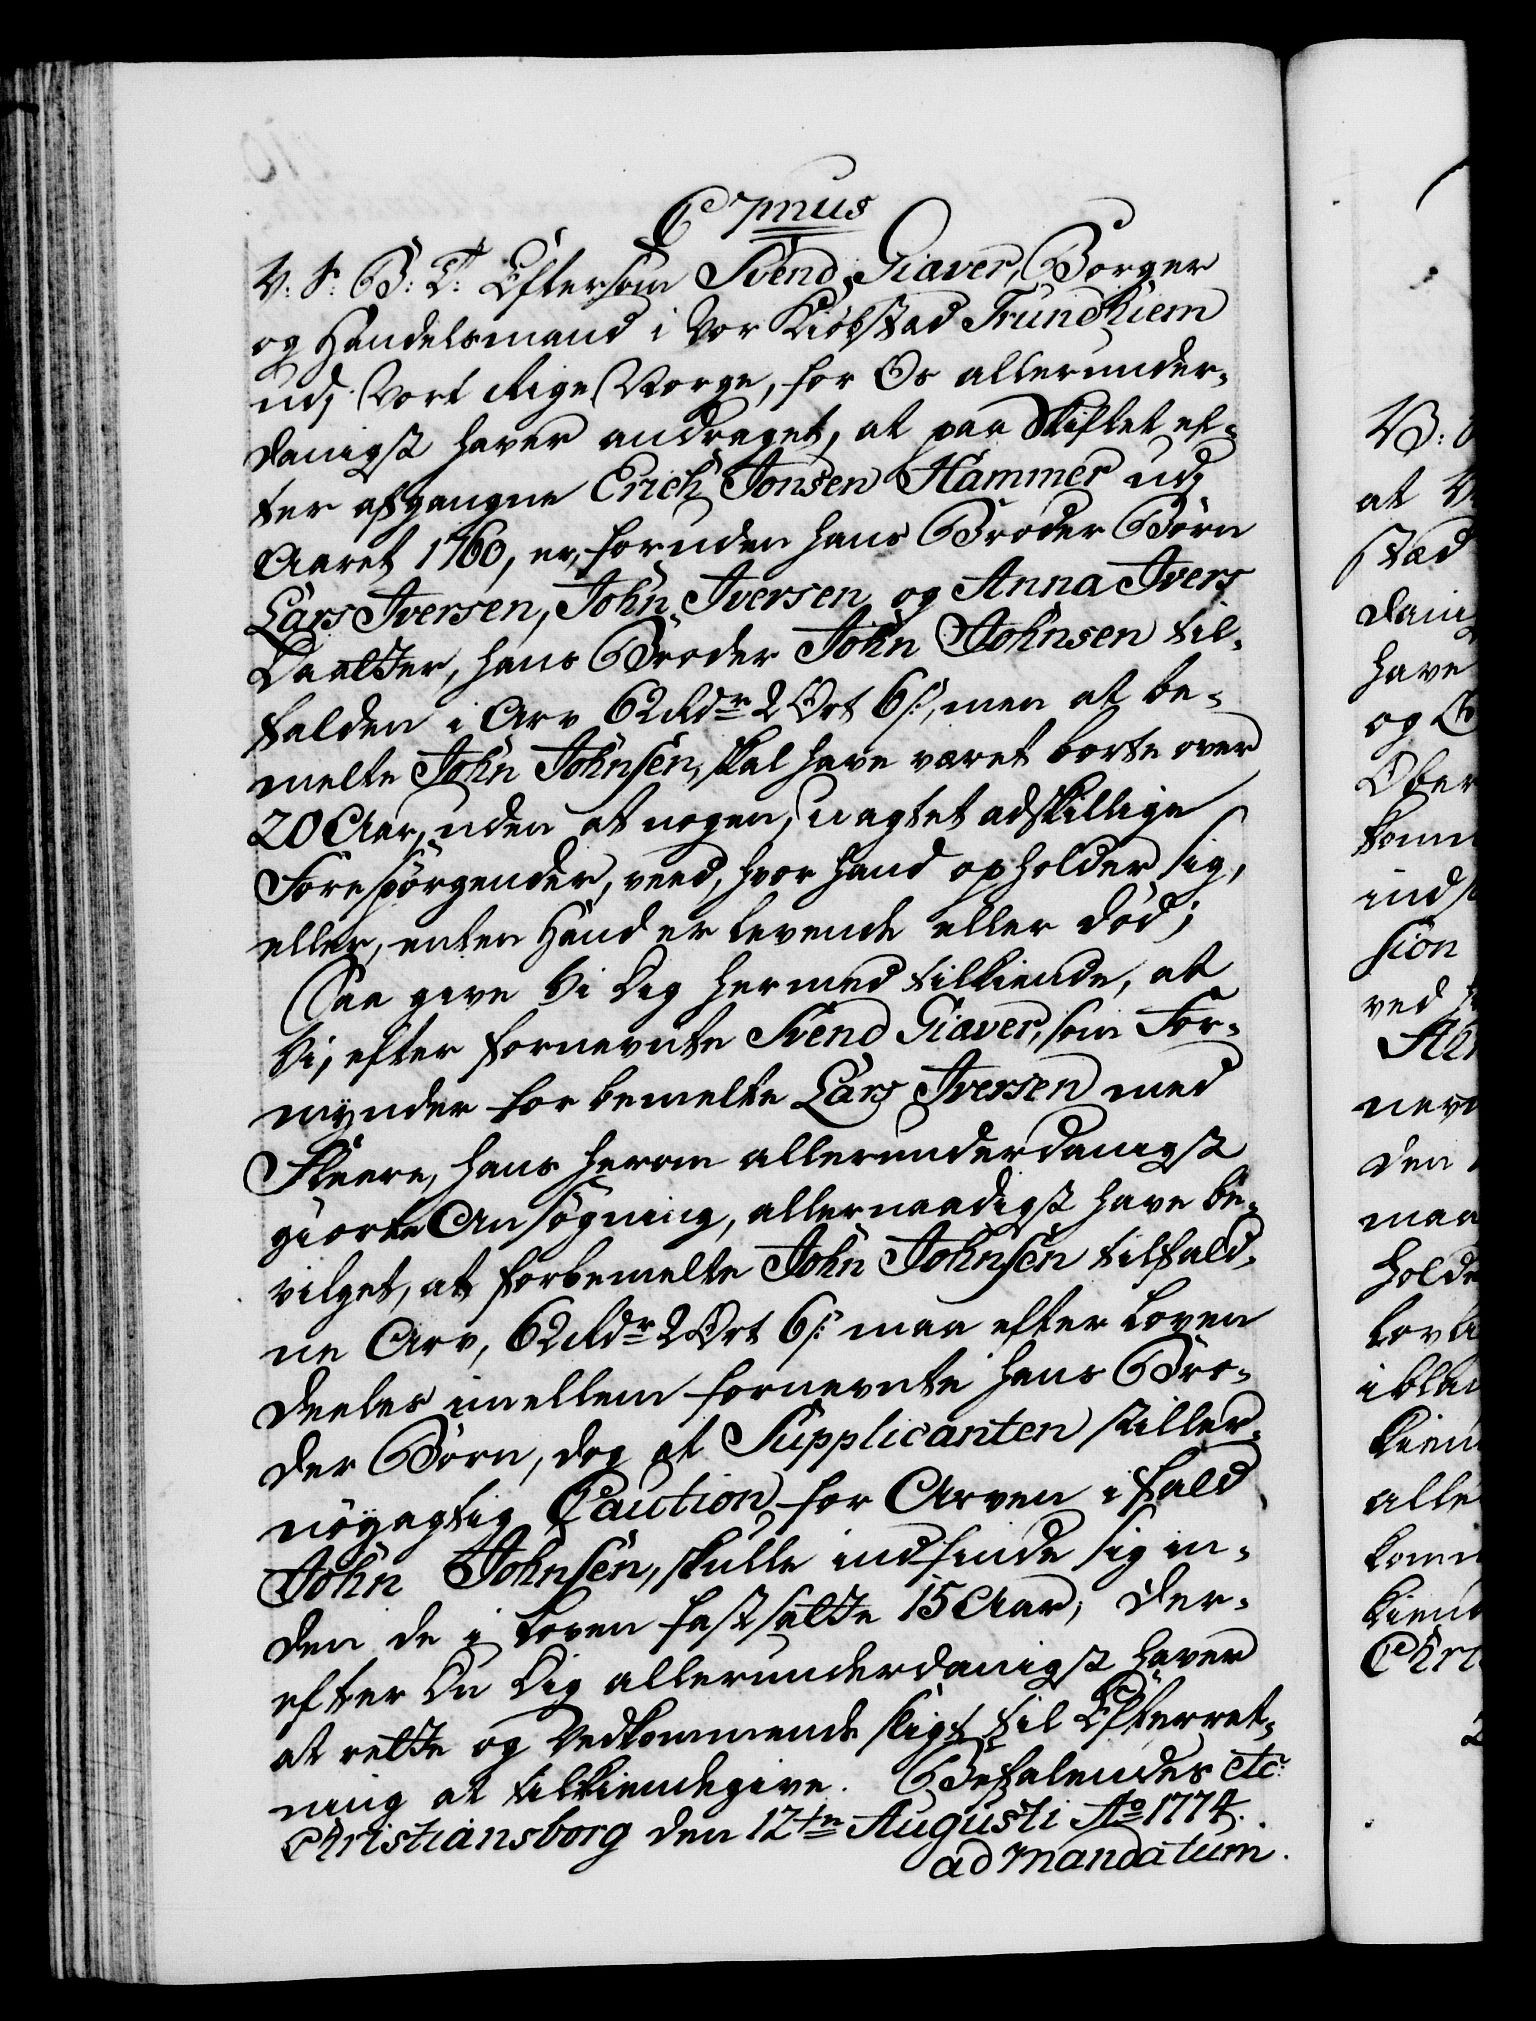 C 7mus
V: S: G: T: Eftersom Svend Giaver, Borger
og Handelsmand i Vor Kiöbstad Trundhiem
udj Vort Rige Norge, for Os allerunder-
danigst haver andraget, at paa Skiftet ef-
ter afgangne Erich Jonsen Hammer udj
Aaret 1760, er, foruden hans Broder Börn
Lars Iversen, John Iversen og Anna Ivers
Daatter, hans Broder John Johnsen til-
falden i Arv 62 Rdr 2 Ort 6 s:, men at be-
melte John Johnsen, skal have været borte over
20 Aar, uden at nogen, uagtet adskillige
Forespörgender, veed, hvor hand opholder sig,
eller, enten Hand er levende eller död;
Saa give Vi Dig hermed tilkiende, at
Vi, efter fornevnte Svend Giaver, som For-
mynder for bemelte Lars Iversen med
Fleere, hans herom allerunderdanigst
giorte Ansögning, allernaadigst have be-
vilget, at forbemelte John Johnsen tilfald-
ne Arv, 62 Rdr 2 Ort 6 s: maa efter Loven
deeles imellem fornevnte hans Bro-
der Börn, dog at Supplicanten stiller
nöyagtig Caution for Arven i fald
John Johnsen, skulle indfinde sig in-
den de i Loven fastsatte 15 Aar; Der-
efter Du Dig allerunderdanigst haver
at rette og Vedkommende sligt til Efterret-
ning at tilkiendegive. Befalendes etc:
Christiansborg den 12tn Augusti Ao 1774.
ad mandatum.